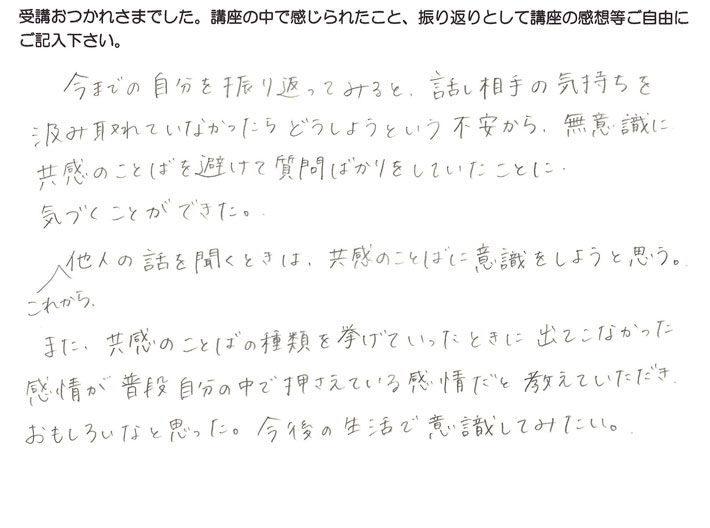 受講おつかれさまでした。講座の中で感じられたこと、振り返りとして講座の感想等ご自由に
ご記入下さい。
今までの自分を振り返ってみると、話し相手の気持ちを
汲み取れていなかったらどうしようという不安から、無意識に
共感のことばを避けて質問ばかりをしていたことに
気づくことができた。
他人の話を聞くときは、共感のことばに意識をしようと思う。
これから、
また、共感のことばの種類を挙げていったときに出てこなかった
感情が普段自分の中で押さえている感情だと教えていただき
おもしろいなと思った。今後の生活で意識してみたい。